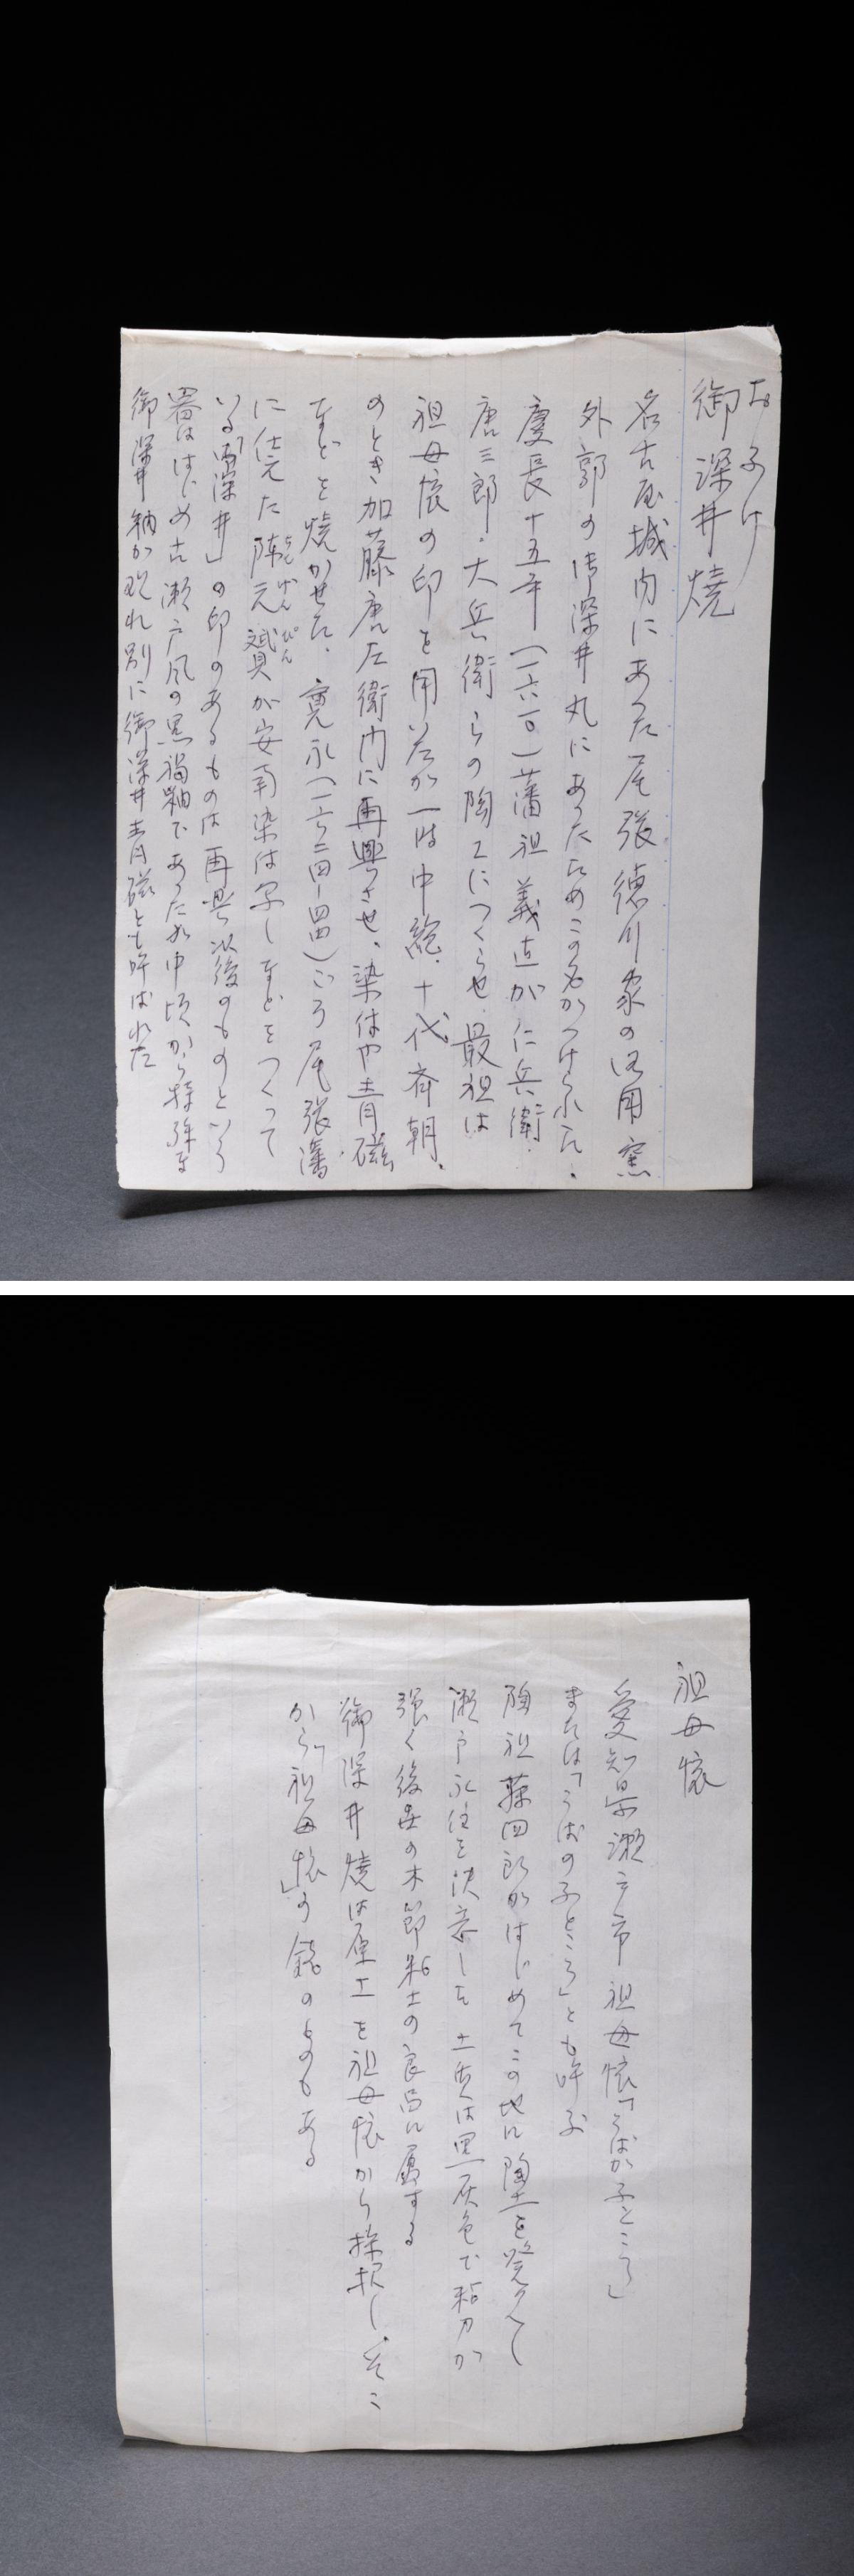 おふけ
御深井焼
名古屋城内にあった尾張徳川家の御用窯
外郭の御深井丸にあったためこの名がつけられた.
慶長十五年(一六一〇)藩祖義直が仁兵衛.
唐三郎.大兵衛らの陶工につくらせ.最初は
祖母懐の印を用いたが一時中絶.十代斉朝.
のとき加藤唐左衛門に再興させ、染付や青磁
などを焼かせた.寛永(一六二四-四四)ごろ尾張藩
に仕えた陳元贇が安南染付写しなどをつくって
ちんげんぴん
いる「深井」の印のあるものは再興以後のものという
器はじめ古瀬戸風の黒褐釉であったが中頃から特殊な
御深井釉が現れ別に御深井青磁とも呼ばれた
祖母懐
愛知県瀬戸市祖母懐「そばがふところ」
または「うばのふところ」とも呼ぶ
陶祖藤四郎がはじめてこの地に陶土を発見し
瀬戸永住を決意した土質は黒灰色で粘力が
強く後世の木節粘土の良品に属する
御深井焼は原土を祖母懐から採択し.そこ
から「祖母懐」の銘のものもある